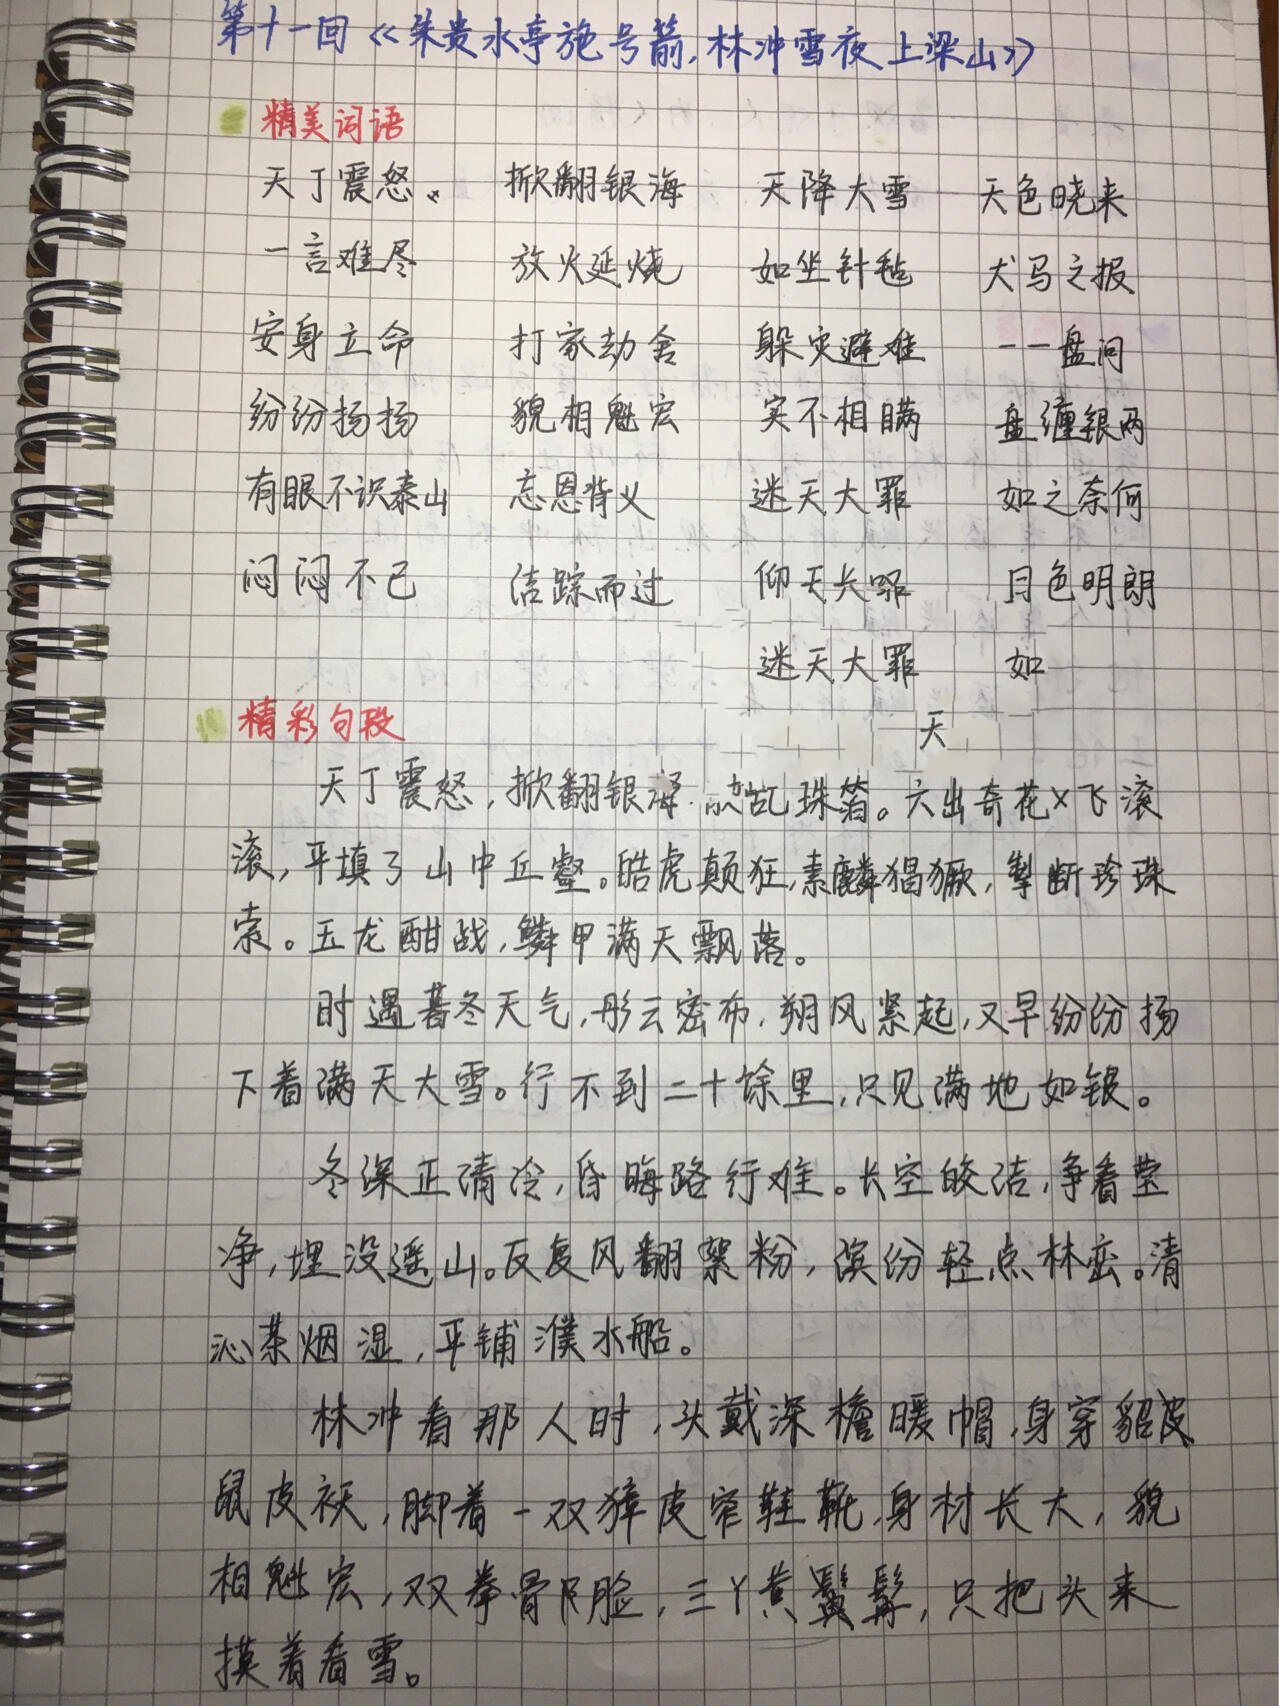 第十一回《朱贵水亭施号箭,林冲雪夜上梁山》
精美词语
天丁震怒、 掀翻银海 天降大雪 天色晓来
一言难尽 放火延烧 如坐针毡 犬马之报
安身立命 打家劫舍 躲灾避难 一一盘问
纷纷扬扬 貌相魁宏 实不相瞒 盘缠银两
有眼不识泰山 忘恩背义 迷天大罪 如之奈何
闷闷不已 洁踪而过 仰天长叹 日色明朗
迷天大罪 如
精彩句段
天
天丁震怒,掀翻银海 散乱珠箔。六出奇花飞滚
滚,平填了山中丘壑。皓虎颠狂,素麟猖獗,掣断珍珠
索。玉龙酣战,鳞甲满天飘落。
时遇暮冬天气,彤云密布,朔风紧起,又早纷纷扬
下着满天大雪。行不到二十馀里,只见满地如银。
冬深正清冷,昏晦路行难。长空皎洁,争看莹
净,埋没遥山。反复风翻絮粉,缤纷轻点林峦。清
沁茶烟湿,平铺濮水船。
林冲看那人时,头戴深檐暖帽,身穿貂皮
鼠皮袄,脚着一双獐皮窄鞋靴,身材长大,貌
相魁宏,双拳骨臉,三丫黄髯,只把头来
摸着看雪。